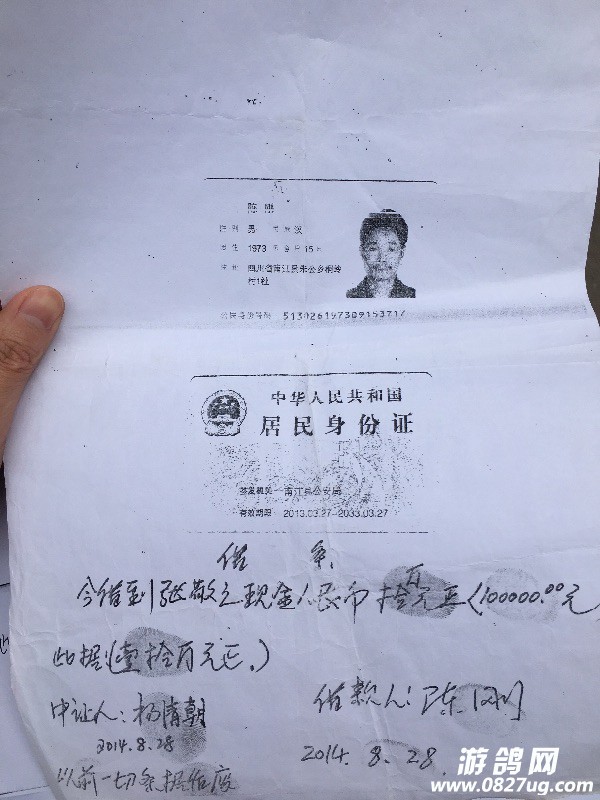 男 民族 汉
1973 年 9 月 15 日
四川省南江县朱公乡
村1社
公民身份号码
中华人民共和国
居民身份证
签发机关 南江县公安局
有效期限 2013.03.27-2033.03.27
借条
今借到张敬之现金人民币拾万元正(100000.00元
此据(壹拾万元正.)
中证人:杨清朝
借款人:陈刚
2014.8.28
2014.8.28.
以前一切条据作废
游鸽网
www.0827ug.com